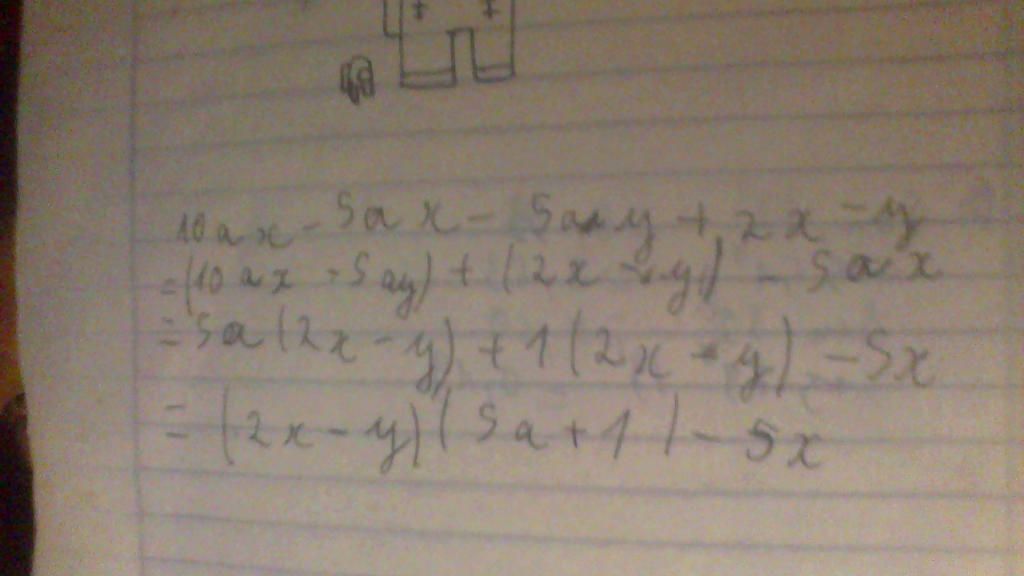 10ax - 5ax - 5ay + 2x - y
= (10ax - 5ay) + (2x - y) - 5ax
= 5a(2x - y) + 1(2x - y) - 5x
= (2x - y)(5a + 1) - 5x